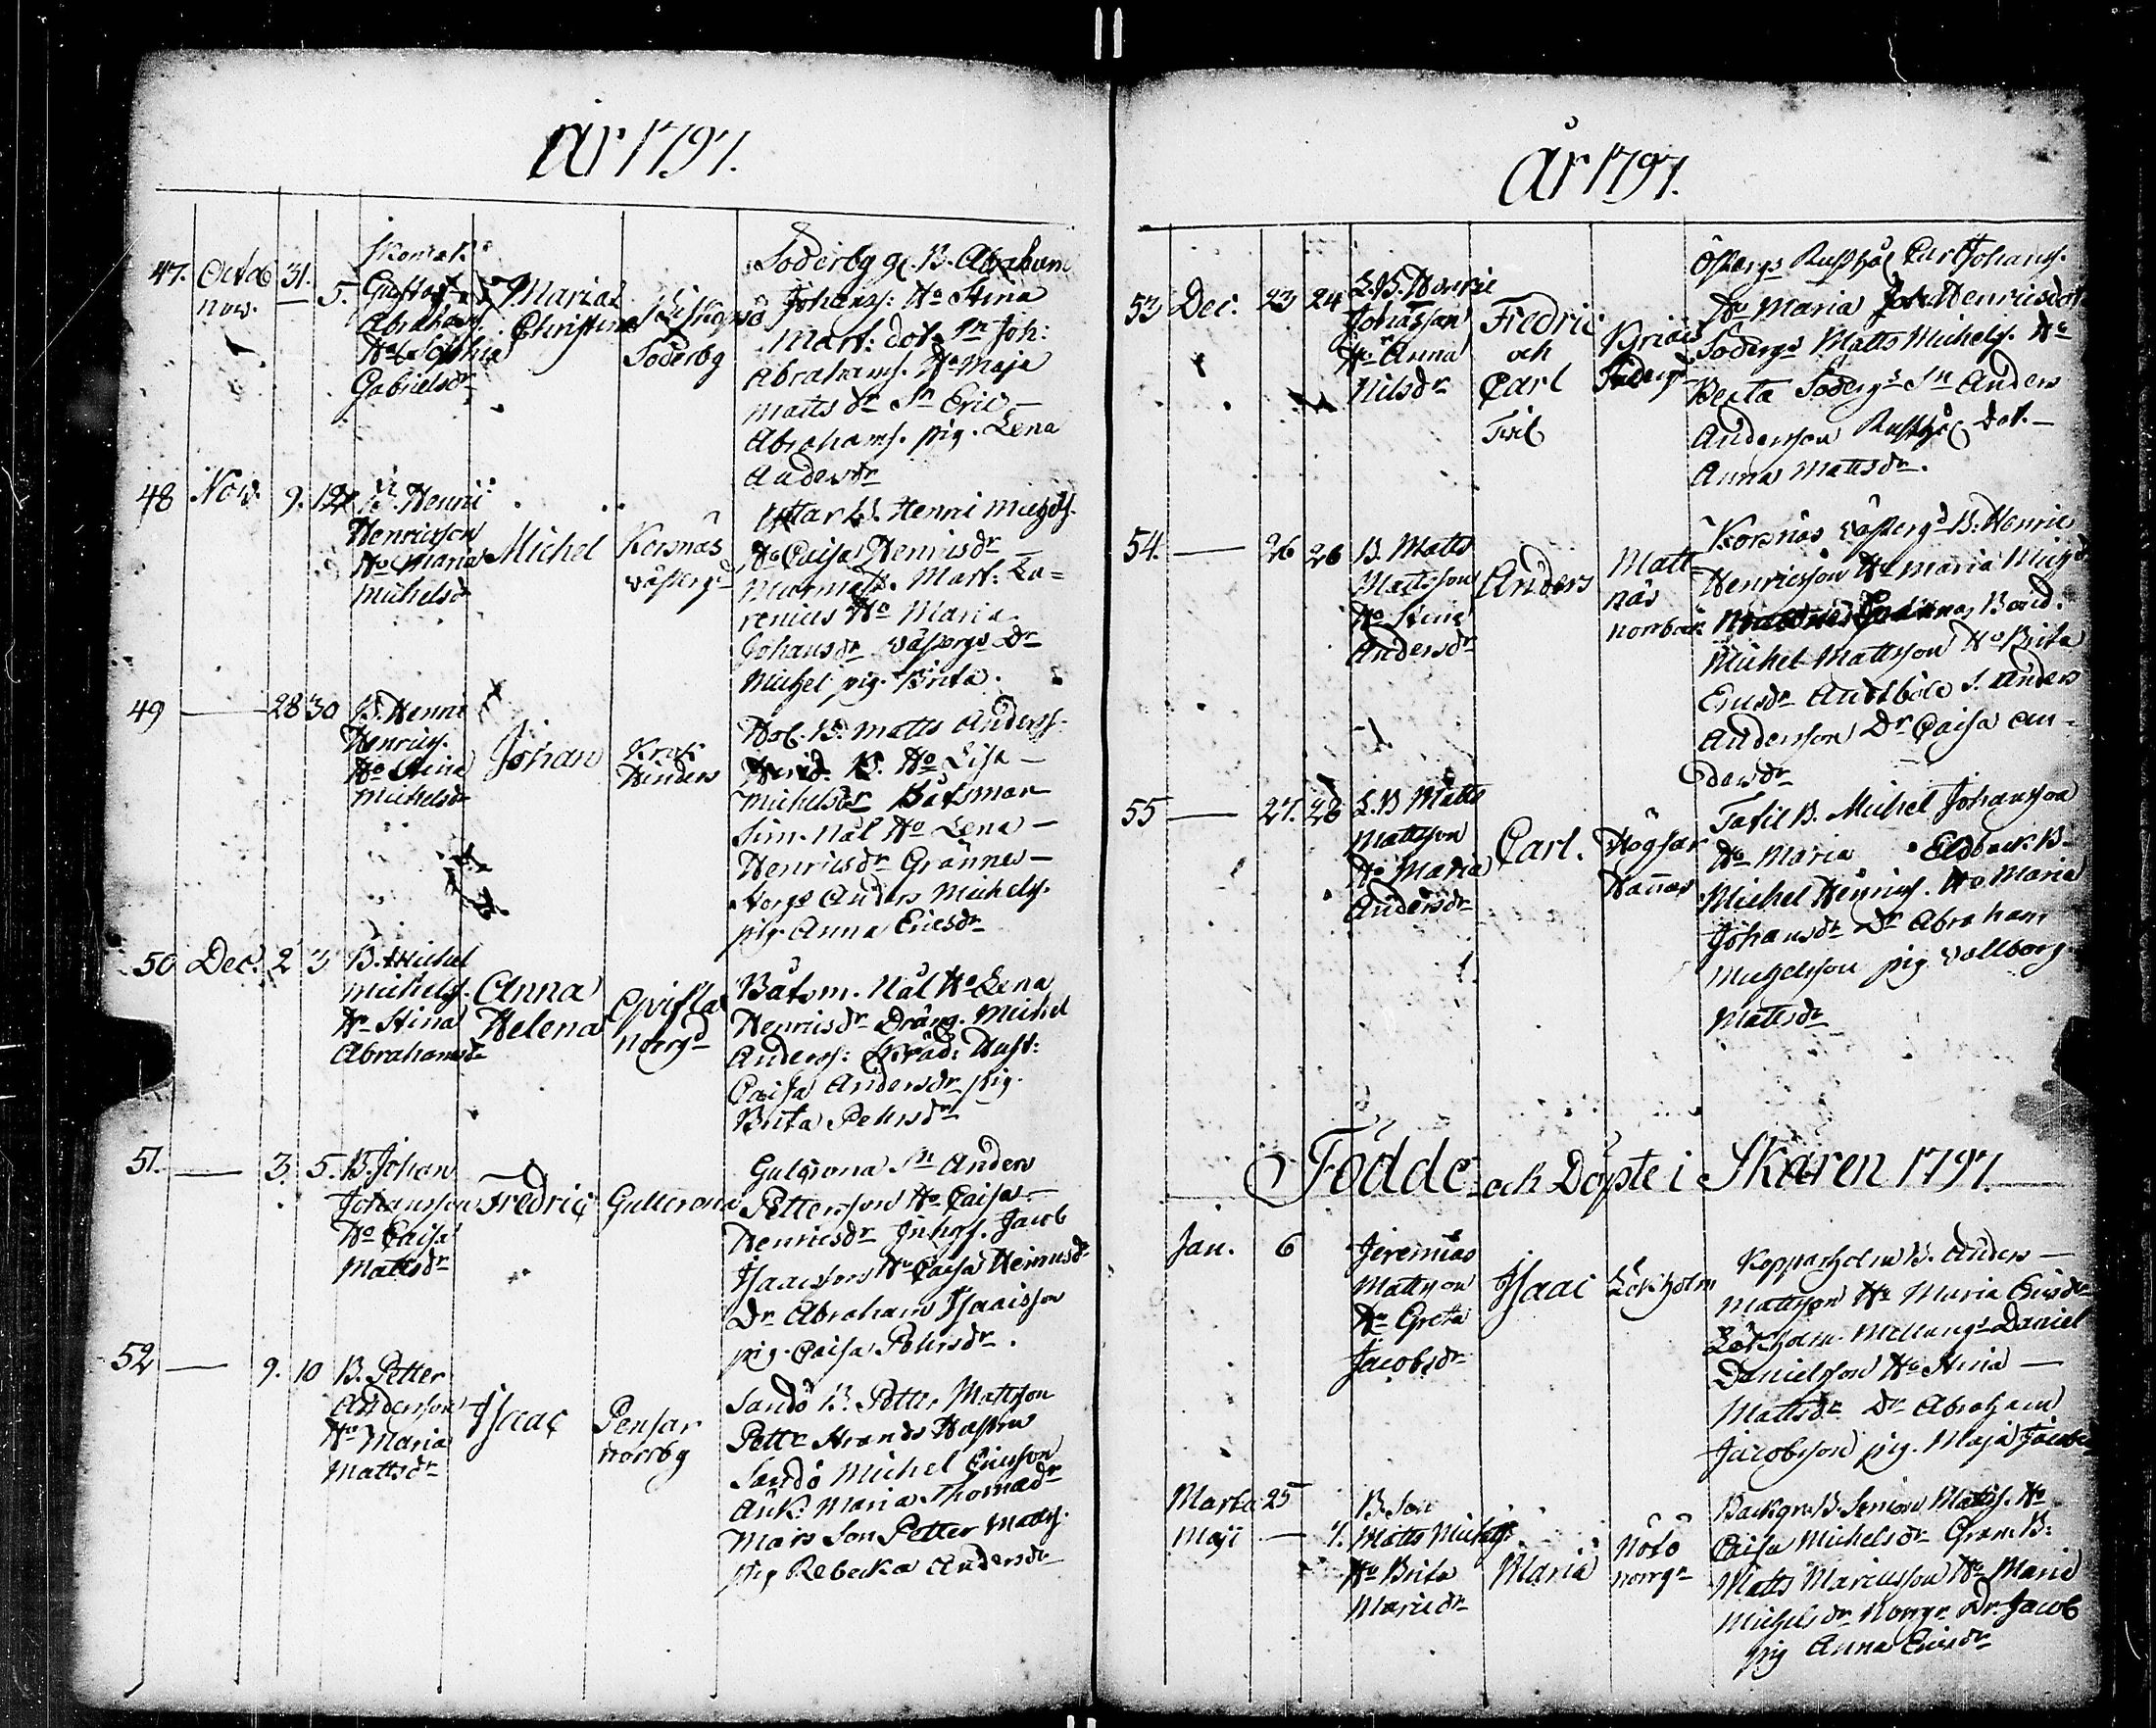 år 1797.
47. Octob 31. Skomak:
nov. — 5. Gustaf
Abrahams.
Ho Sophia
Gabrielsdr
Maria
Christina
Biskopsö
Söderbg
Söderby gl. B. Abraham
Johanss: Ho Stina
Mart: dotr Sn Joh:
Abrahams. Ho Maja
Matts dr Sn Eric —
Abrahams. pig. Lena
Andersdr
48 Nov. 9. 12 B. Henric
Henricsson
Ho Maria
Michelsdr
Michel
Korsnäs
wästergd
B. Henric Michels.
Ho Caisa Henricsdr —
Murmäst. Mart: La=
renius Ho Maria
Johansdr wästergs Dr
Michel pig. Brita.
49 — 28 30 B. Henric
Henricss.
Ho Stina
Michelsdr
Johan
Krok
Hinders
B. Matts Anderss.
Ho Lisa —
Michelsdr Båtsman
Sim. Nål Ho Lena —
Henricsdr Grännes —
torgs Anders Michels.
pig. Anna Ericsdr
50 Dec. 2 3 B. Michel
Michels.
Ho Stina
Abrahamsdr
Anna
Helena
Qvifla
norrgd
Båtsm. Nål Ho Lena
Henricsdr Dräng. Michel
Anderss: Hust:
Caisa Andersdr pig.
Brita Pehrsdr
51. — 3. 5. B. Johan
Johansson
Ho Caisa
Mattsdr
Fredric
Gullerona
Gulcrona Sn Anders
Pettersson Ho Caisa —
Henricsdr Inhys. Jacob
Isaacsson Ho Caisa Henricsdr
Dr Abraham Isaacsson
pig. Caisa Pehrsdr.
52 — 9. 10 B. Petter
Andersson
Ho Maria
Mattsdr
Isaac
Pensar
norrbg
Sandö B. Petter Mattsson
Petter Strands Hustru
Sandö Michel Ericsson
Änk. Maria Thomasdr
Mårs Son Petter Matts.
pig Rebecka Andersdr
År 1797.
53 Dec. 23 24 L. B. Henric
Johansson
Ho Anna
Nilsdr
Fredric
och
Carl
Twil
Österg Rusth. Carl Johans.
Ho Maria Henricsdotr
Södergs Matts Michels. Ho
Berta Södergs Sn Anders
Andersson Rusth. dot. —
Anna Mattsdr.
54. — 26 26 B. Matts
Mattsson
Ho Stina
Andersdr
Anders
Matt
näs
norrback
Korsnäs wästergd B. Henric
Henricsson Ho Maria Michelsdr
Bond.
Michel Mattsson Ho Brita
Ericsdr S. Anders
Andersson Dr Caisa An-
dersdr
55 — 27. 28 L. B Matts
Mattsson
Ho Maria
Andersdr
Carl.
Högsar
Hannas
B. Michel Johansson
Ho Maria B.
Michel Henrics. Ho Maria
Johansdr Dr Abraham
Michelsson pig. Vallborg
Mattsdr
Födde och Döpte i Skären 1797.
Jan. 6 Jeremias
Mattsson
Ho Greta
Jacobsdr
Isaac
Lökholm
Kopparholm B. Anders —
Mattsson Ho Maria Ericsdr
Lökholm Mellangs Daniel
Danielsson Ho Stina —
Mattsdr Dr Abraham
Jacobsson pig. Maja Jacobs
Martii 25 B. Son
Maji — 7. Matts Michels.
Ho Brita
Maricdr
Maria
Nötö
norrgd
Backgr. B. Simon Matts. Ho
Caisa Michelsdr Gräns B:
Matts Maricsson Ho Maria
Michelsdr Norrgr Dr. Jacob
pig Anna Ericsdr